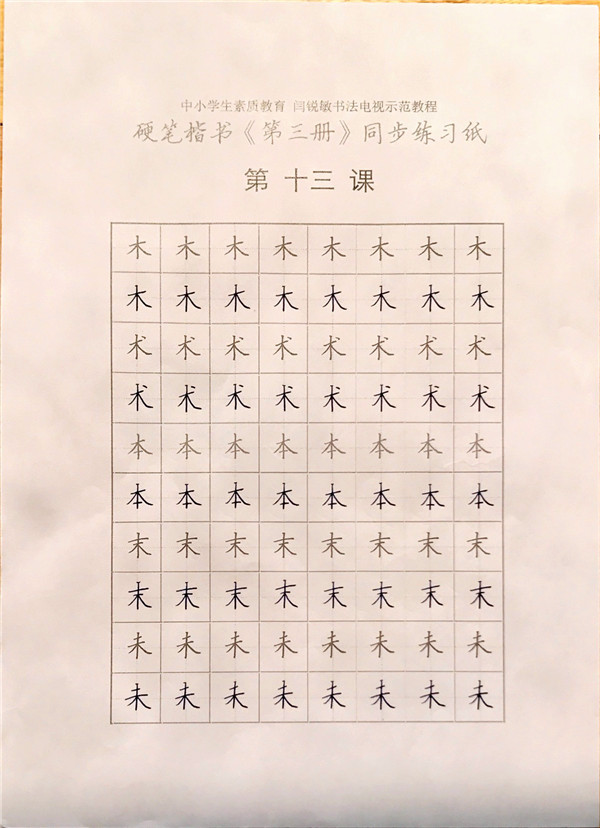 中小学生素质教育 闫锐敏书法电视示范教程
硬笔楷书《第三册》同步练习纸
第 十三 课
木 木 木 木 木 木 木 木
木 木 木 木 木 木 木 木
术 术 术 术 术 术 术 术
术 术 术 术 术 术 术 术
本 本 本 本 本 本 本 本
本 本 本 本 本 本 本 本
末 末 末 末 末 末 末 末
末 末 末 末 末 末 末 末
未 未 未 未 未 未 未 未
未 未 未 未 未 未 未 未